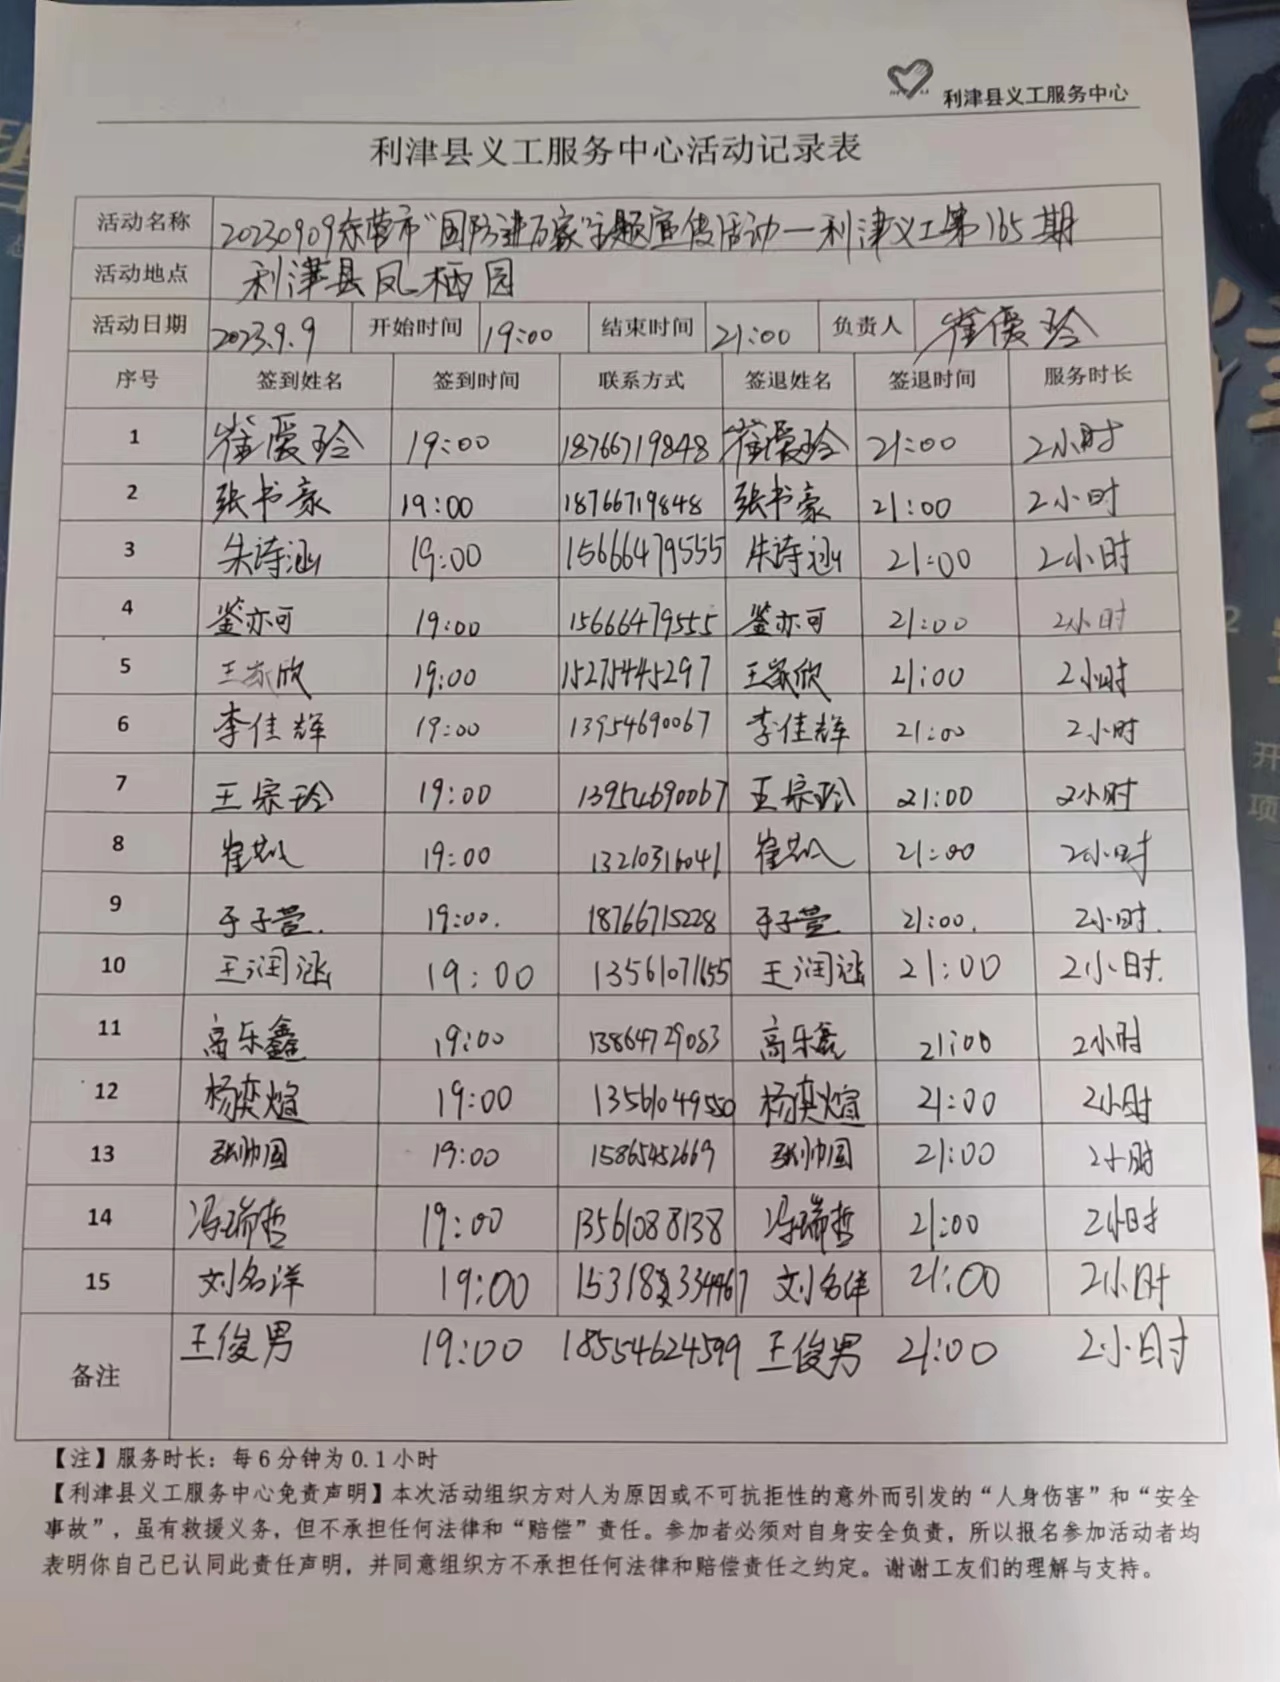 利津县义工服务中心
利津县义工服务中心活动记录表
活动名称 20230909东营市“国防进万家”主题宣传活动—利津义工第165期
活动地点 利津县凤栖园
活动日期 2023.9.9 开始时间 19:00 结束时间 21:00 负责人 崔爱玲
序号 签到姓名 签到时间 联系方式 签退姓名 签退时间 服务时长
1 崔爱玲 19:00 18766719848 崔爱玲 21:00 2小时
2 张书豪 19:00 18766719848 张书豪 21:00 2小时
3 朱诗涵 19:00 15666479555 朱诗涵 21:00 2小时
4 鉴亦可 19:00 15666479555 鉴亦可 21:00 2小时
5 王家欣 19:00 15275445297 王家欣 21:00 2小时
6 李佳辉 19:00 13954690067 李佳辉 21:00 2小时
7 王宗玲 19:00 13954690067 王宗玲 21:00 2小时
8 崔 19:00 13210316041 崔 21:00 2小时
9 于子萱. 19:00. 18766715228 于子萱. 21:00. 2小时.
10 王润涵 19:00 13561071655 王润涵 21:00 2小时.
11 高乐鑫 19:00 13864729083 高乐鑫 21:00 2小时
12 杨奕煊 19:00 13561049550 杨奕煊 21:00 2小时
13 张帅国 19:00 15865452669 张帅国 21:00 2小时
14 冯瑞哲 19:00 13561088138 冯瑞哲 21:00 2小时
15 刘名洋 19:00 刘名洋 21:00 2小时
备注 王俊男 19:00 18554624599 王俊男 21:00 2小时
【注】服务时长：每6分钟为0.1小时
【利津县义工服务中心免责声明】本次活动组织方对人为原因或不可抗拒性的意外而引发的“人身伤害”和“安全
事故”，虽有救援义务，但不承担任何法律和“赔偿”责任。参加者必须对自身安全负责，所以报名参加活动者均
表明你自己已认同此责任声明，并同意组织方不承担任何法律和赔偿责任之约定。谢谢工友们的理解与支持。